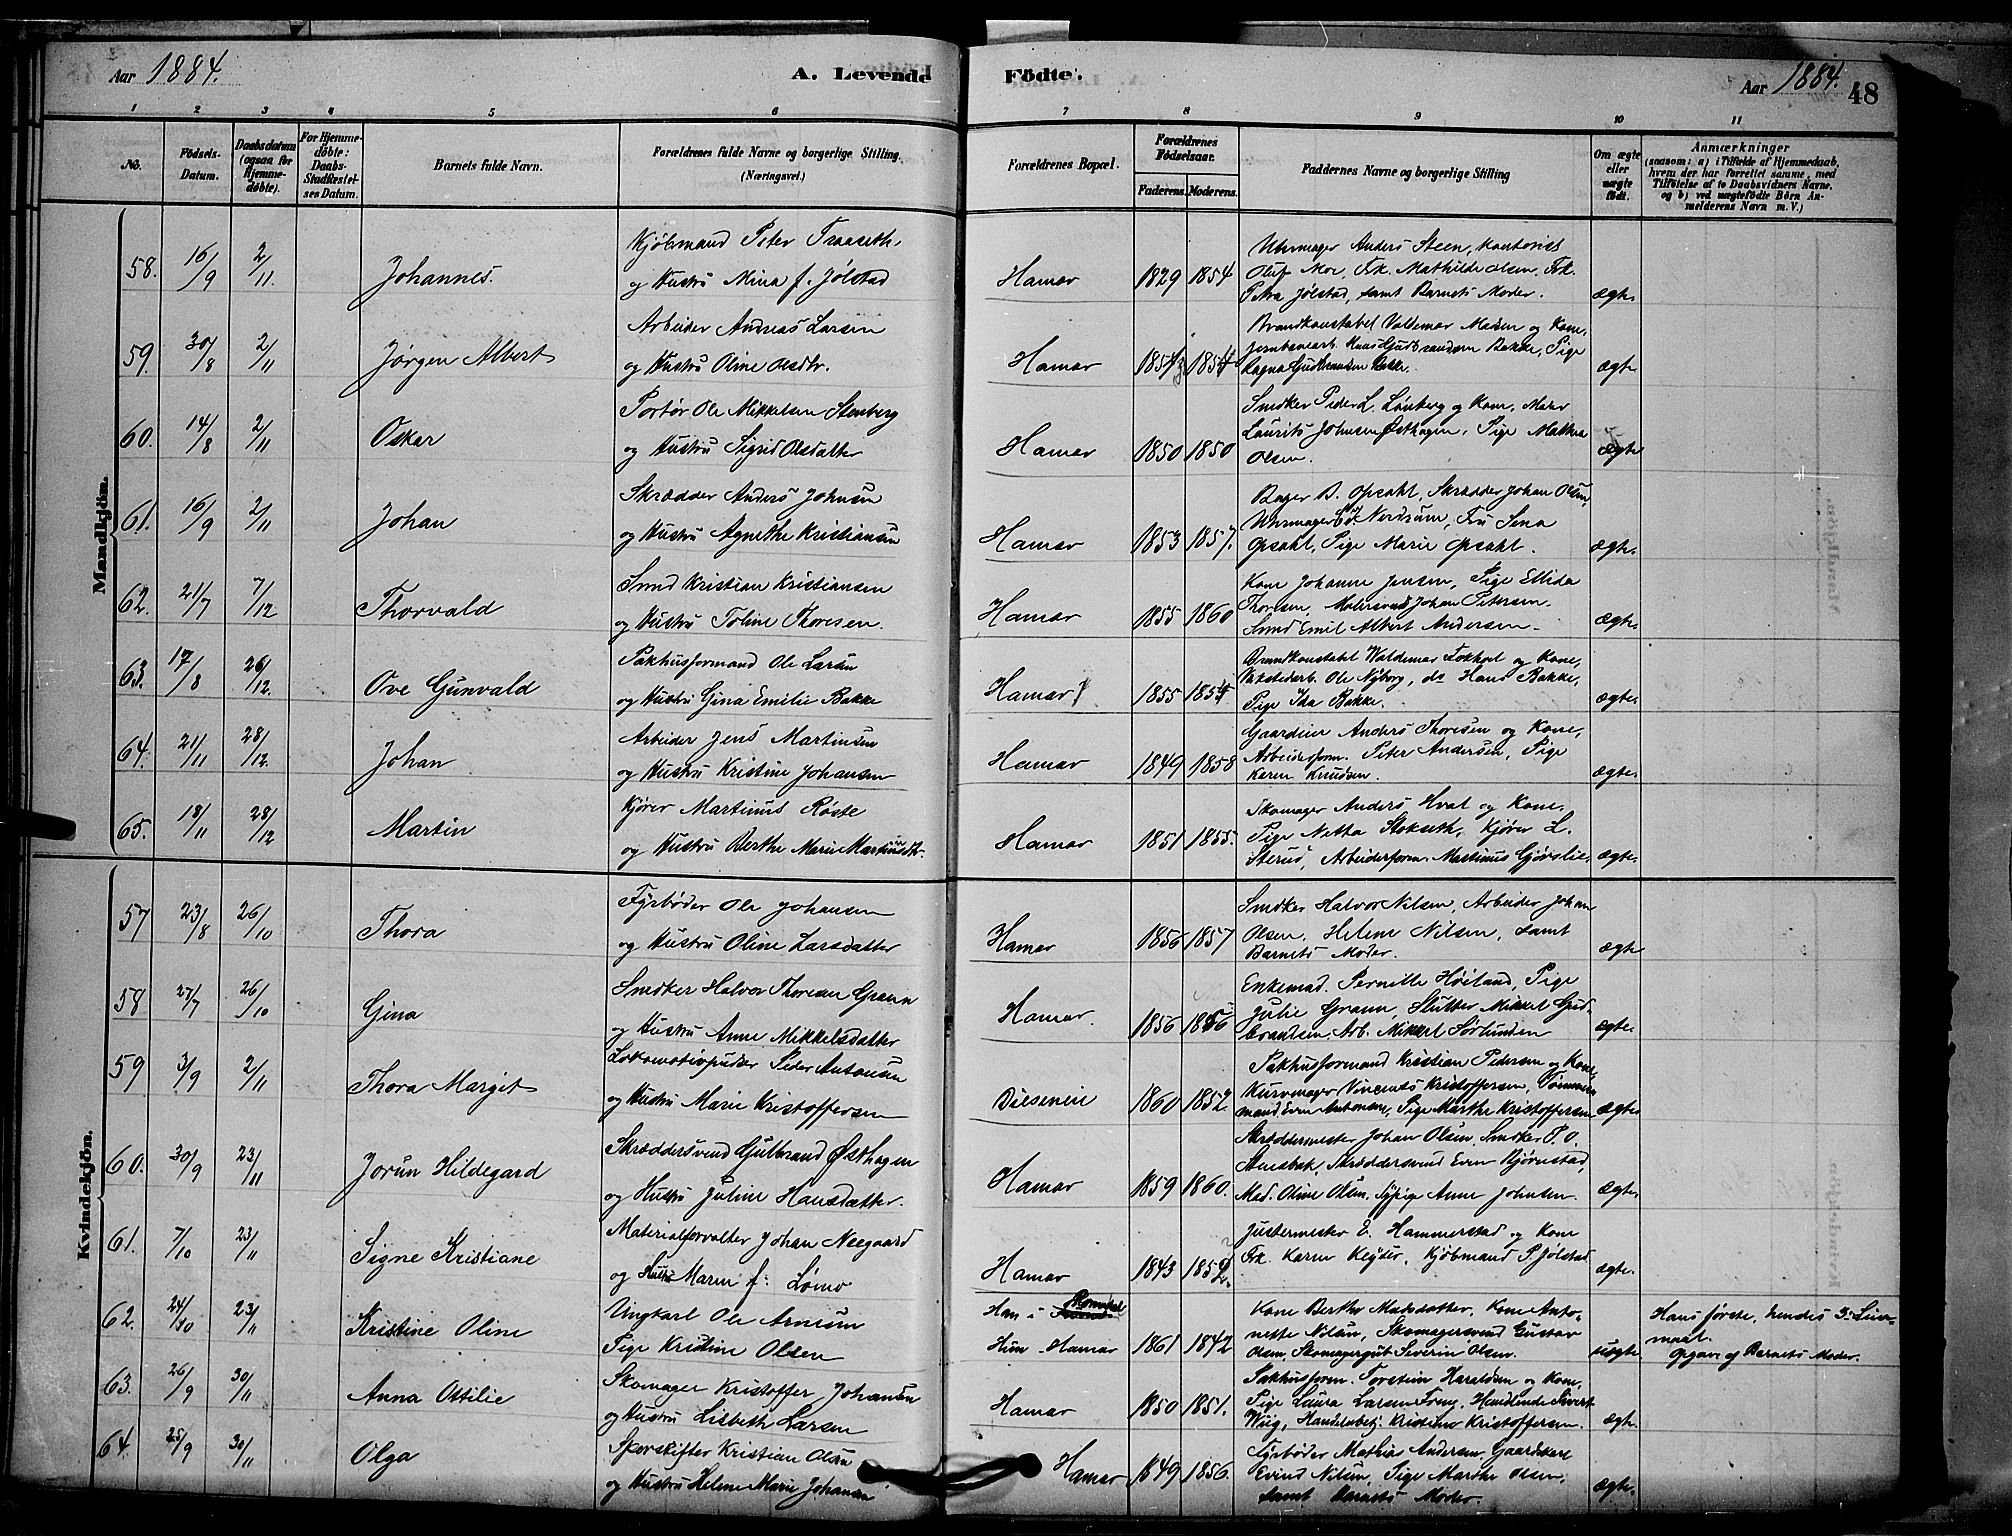 Aar 1884.
A. Levende Födte.
Aar 1884.
48
1 2 3 4 5 6 7 8 9 10 11
No.
Födsels-Datum.
Daabsdatum (ogsaa for Hjemme-döbte).
For Hjemme-döbte: Daabs-Stadfæstel-ses Datum.
Barnets fulde Navn.
Forældrenes fulde Navne og borgerlige Stilling.
(Næringsvei.)
Forældrenes Bopæl.
Forældrenes Födselsaar.
Faderens. Moderens.
Faddernes Navne og borgerlige Stilling
Om ægte eller uægte födt.
Anmærkninger
(saasom: a) i Tilfælde af Hjemmedaab, hvem der har forrettet samme, med Tilföielse af to Daabsvidners Navne, og b) ved uægtefödte Börn An-melderens Navn m. V.)
Mandkjön.
58. 16/9 2/11 Johannes. Kjøbmand Peter Traaseth, Uhrmager Anders Steen, Kontorist
og Hustru Mina f. Jølstad Hamar 1829 1854 Oluf Moe, Frk. Mathilde Olsen, Frk.
Petra Jølstad, samt Barnets Moder. ægte.
59. 30/8 2/11 Jørgen Albert Arbeider Andreas Larsen Brandkonstabel Valdemar Madsen og Kone,
og Hustru Oline Olsdtr. Hamar 1854 1854 Jernbanearb. Hans Gudbrandsen Bakke, Pige
Ragna Gudbransen Bakke. ægte
60. 14/8 2/11 Oskar Portør Ole Mikkelsen Stenberg Snedker Peder L. Lønberg og Kone, Maler
og Hustru Sigrid Olsdatter Hamar 1850 1850 Laurits Johnsen Østhagen, Pige Mathea
Olsen. ægte
61. 16/9 2/11 Johan Skrædder Anders Johnsen Bager B. Opsahl, Skrædder Johan Olsen,
og Hustru Agnethe Kristiansen Hamar 1853 1857. Uhrmager Nordrum, Fru Sena
Opsahl, Pige Marie Opsahl. ægte.
62. 21/7 7/12 Thorvald Smed Kristian Kristiansen Kone Johanne Jensen, Pige Ellida
og Hustru Toline Thoresen. Hamar 1855 1860 Thoresen, Malersvend Johan Petersen.
Smed Emil Albert Andersen. ægte.
63. 17/8 26/12. Ove Gunvald Pakhusformand Ole Larsen Brandkonstabel Waldemar og Kone,
og Hustru Gina Emilie Bakke Hamar 1855 1854 Ole Nyborg, do Hans Bakke,
Pige Ida Bakke. ægte.
64. 21/11 28/12. Johan Arbeider Jens Martinsen Gaardeier Anders Thoresen og Kone,
og Hustru Kristine Johansen Hamar 1849 1858 Arbeidsform. Peter Andersen, Pige
Karen Knudsen. ægte.
65. 18/11 28/12 Martin Kjører Martinus Røste Skomager Anders Hval og Kone,
og Hustru Berthe Marie Martinusdtr. Hamar 1851 1855. Pige Netta Stokseth, Kjører L.
Sterud, Arbeiderform. Martinus Gjørslie. ægte.
Kvindekjön.
57 23/8 26/10 Thora Fyrbøder Ole Johansen Snedker Halvor Nilsen, Arbeider Johan
og Hustru Oline Larsdatter Hamar 1856 1857 Olsen, Helene Nilsen, samt
Barnets Moder. ægte
58 27/7 26/10 Gina Snedker Halvor Thoresen Grann Enkemad. Pernille Høiland, Pige
og Hustru Anne Mikkelsdatter Hamar. 1856 1856 Julie Grann, Slutter Mikkel Gud-
brandsen, Arb. Mikkel Sørlunden ægte.
59 3/9 2/11 Thora Margit Lokomotivpudser Peder Antonsen Pakhusformand Kristian Pedersen og Kone,
og Hustru Marie Kristoffersen Disenveien 1860 1852 Kurvmager Vincents Kristoffersen, Tømmer-
mand Even Antonsen, Pige Marthe Kristoffersen ægte
60. 30/9 23/11 Jorun Hildegard Skræddersvend Gulbrand Østhagen Skræddermester Johan Olsen, Snedker P. O.
og Hustru Juline Hansdatter. Hamar 1859 1860. Stuesbak, Skræddersvend Even Bjørnstad,
Mad. Oline Olsen, Sypige Anne Johnsen. ægte.
61. 7/10 23/11 Signe Kristiane Materialforvalter Johan Neegaard Justermester E. Hammerstad og Kone
og Hustru Maren f. Lømo Hamar 1843 1852. Frk. Karen Keyser, Kjøbmand P. Jølstad ægte.
62. 24/10 23/11 Kristine Oline Ungkarl Ole Arnesen Han i Romedal Kone Berthe Madsdatter, Kone Anto- Hans første, hendes 3. Leier-
Pige Kristine Olsen Hun Hamar 1861 1842 nette Nilsen, Skomagersvend Gustav maal.
Olsen, Skomagergut Severin Olsen. uægte Opgave af Barnets Moder.
63. 26/9 30/11 Anna Ottilie Skomager Kristoffer Johansen Pakhusform. Torstein Haraldsen og Kone,
og Hustru Lisbeth Larsen Hamar 1850 1851. Pige Laura Larsen Freng, Handlende Sivert
Wiig, Handelsbetj. Kristian Kristoffersen. ægte
64. 25/9 30/11 Olga Skorskifter Kristian Olsen Fyrbøder Mathias Andersen, Gaardskarl
og Hustru Helene Marie Johansen Hamar 1849 1856. Evind Nilsen, Pige Marthe Olsen,
samt Barnets Moder. ægte.